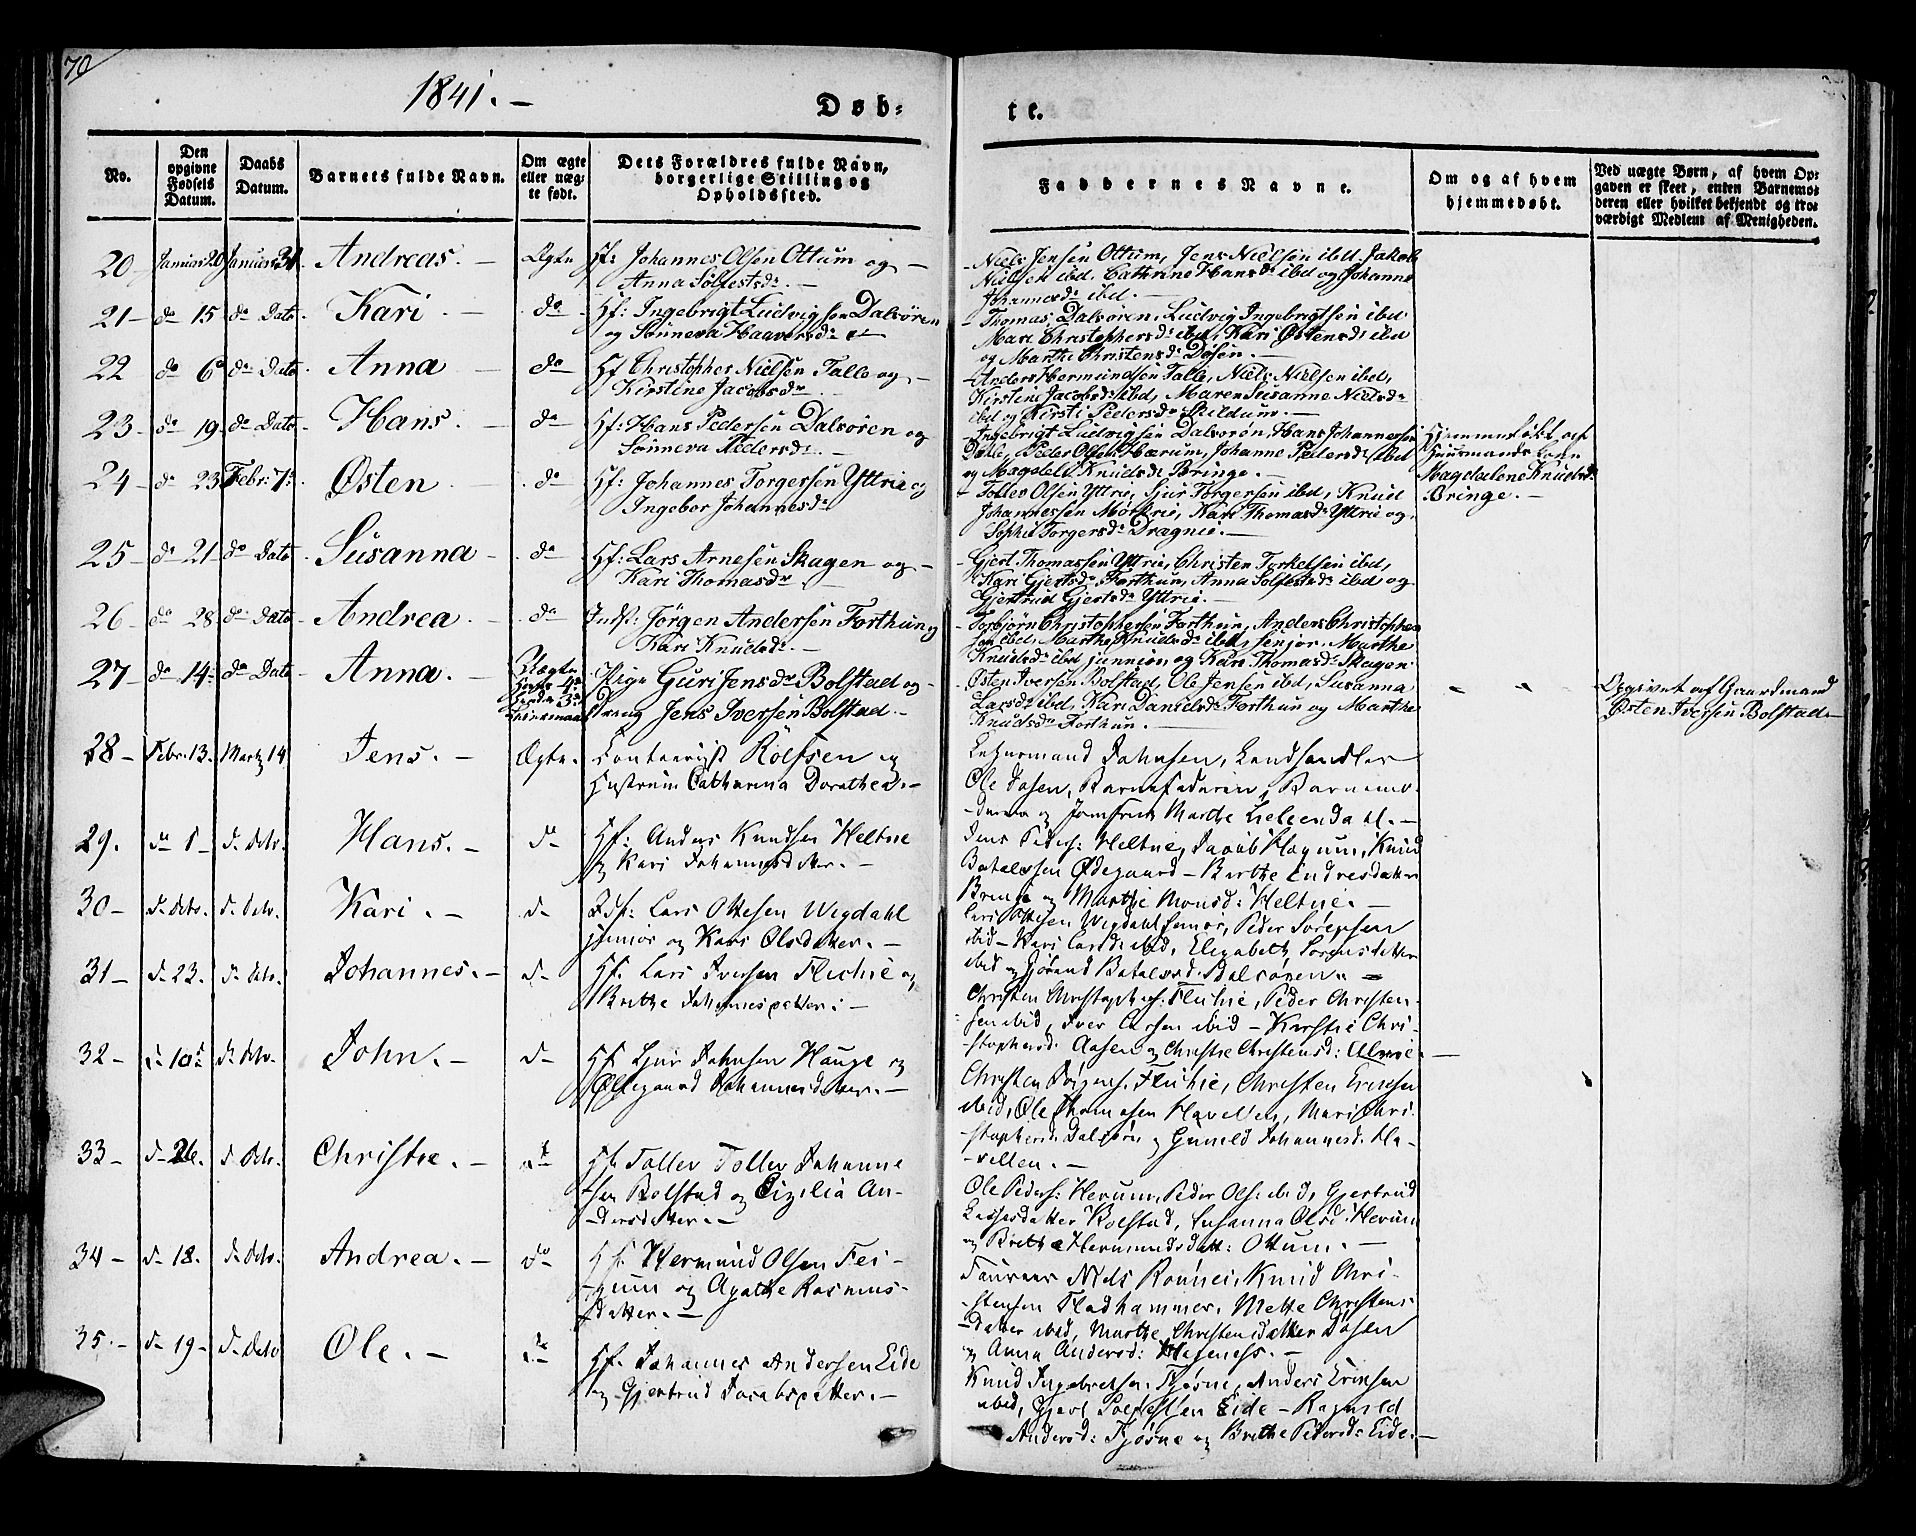 70
1841. —
Døb-
te.
No.
Den opgivne Fødsels Datum.
Daabs Datum.
Barnets fulde Navn.
Om ægte eller uæg-te født.
Dets Forældres fulde Navn, borgerlige Stilling og Opholdssted.
Faddernes Navne.
Om og af hvem hjemmedøbt.
Ved uægte Børn, af hvem Op-
gaven er skeet, enten Barnemo-
deren eller hvilket bekjendt og tro-
værdigt Medlem af Menigheden.
20 Januar 20 Januar 31 Andreas. — Ægte Hf: Johannes Olsen Ottum og —
Anna Solfestsdr. —
Niels Jensen Ottum, Jens Nielsen ibd. Jakob
Nielsen ibd, Cathrine Hansdr ibd og Johanne
Johannesdr ibd. —
21 — do 15 do Dato Kari. — do Hf: Ingebrigt Ludvigsen Dalsøren
og Sønneva Haavorsdr —
Thomas Dalsøren, Ludvig Ingebrigtsen ibd
Mari Christophersdr ibd, Kari Østensdr ibd
og Marthe Christensdr Døsen. —
22 do 6 do Dato Anna — do Hf Christopher Nielsen Talle og —
Kirstine Jacobsdr
Anders Hermundsen Talle, Niels Nielsen ibd,
Kirstine Jacobsdr ibd, Maren Susanne Nielsdr
ibd og Kirsti Pedersdr Skildum. —
23 — do 19 do Dato Hans. — do Hf: Hans Pedersen Dalsøren og
Sønneva Pedersdr. —
Ingebrigt Ludvigsen Dalsøren, Hans Johannesen
Talle, Peder Olsen Hærum, Johanne Pedersdr ibd
og Magdele Knudsdr Bringe. —
Hjemmedøbt af
Huusmands Kone
Magdalene Knudsdr
Bringe. —
24 — do 23 Febr: 7: Østen — do Hf: Johannes Torgersen Yttrie og
Ingebor Johannesdr
Tolles Olsen Yttri, Sjur Torgersen ibd, Knud
Johannessen Mørkrie, Kari Thomasdr Yttrie og
Sophie Torgersdr Dragnie. —
25 — do 21 do Dato Susanna — do Hf: Lars Arnesen Skagen og —
Kari Thomasdr
Gjert Thomassen Yttrie, Christen Torkelsen ibd,
Kari Gjertsdr Forthun, Anna Solfestsdr ibd, og
Gjertrud Gjertsdr Yttrie. —
26 — do 28 do Dato Andrea — do Inds: Jørgen Andersen Forthun og
Kari Knudsdr. —
Torbjørn Christophersen Forthun, Anders Christopher
sen ibd, Marthe Knudsdr ibd senjor. Marthe
Knudsdr ibd junnior og Kari Thomasdr Skagen.
27 — do 14: do Dato Anna. — Uægte
Pige Guri Jensdr Bolstad og
Dreng Jens Iversen Bolstad. —
Østen Iversen Bolstad, Ole Jensen ibd, Susanna
Larsdr ibd, Kari Danielsdr Forthun og Marthe
Knudsdr Forthun. —
Opgivet af Gaardmand
Østen Iversen Bolstad —
28 — Febr: 13. Martz 14. Jens. — Ægte. Rolfsen og
Hustrue Catharina Dorathea. —
Johnsen, Landhandler
Ole Døsen, Barnefaderen, Barnemo-
deren og Jomfrue Marthe —
29. do 1 — do dito. Hans. — do Hf: Anders Knudsen Heltne
og Kari Johannesdatter. —
Jens Peders: Heltne, Jacob Hagum, Knud
Batalssen Ødegaard — Birthe Endresdatter
Bringe og Marthe Monsd: Heltne. —
30 — do dito. do dito. Kari. — do Inds: Lars Ottesen Wigdahl
junior og Kari Olsdatter. —
Lars Ottesen Wigdahl senior, Peder Sørensen
ibid — Kari Larsdr ibid, Elisabeth Sørensdatter
ibid og Jørand Batalsd: Dalsøren. —
31 — do 23. do dito. Johannes. — do Hf. Lars Iversen Flichie og
Brithe Johannesdatter: —
Christen Christophers: Flichie, Peder Christen-
sen ibid, Iver Larsen ibid — Kirstie Chri-
stophersd: Aasen og Christie Christensd: —
32 — do 10de do dito. John. — do Hf Sjur Johnsen Hauge og
Oldegaard Johannesdatter. —
Christen Flichie, Christen Ericksen
ibid, Ole Thomasen Havellen, Mari Chri-
stophersd: Dalsøren og Gunild Johannesd: Ha-
vellen. —
33 — do 26. do dito. Christie. — do Hf. Toller Toller Johanne
sen Bolstad og Cizilia An-
dersdatter. —
Ole Peders: Herum, Peder Ols: ibid, Gjertrud
Lassesdatter Bolstad, Susanna Olsd: Herum
og Brithe Hermundsdatt: Ottum. —
34 — do 18. do dito. Andrea. — do Hf. Hermund Olsen Fei-
gum og Agathe Rasmus-
datter. —
Niels Rønnei, Knud Chri-
stensen Fladhammer, Mette Christens-
datter ibid, Marthe Christensdatter Døsen
og Anna Andersd: —
35. — do 19 — do dito Ole. — do Hf. Johannes Andersen Eide
og Gjertrud Jacobsdatter. —
Knud Ingebretsen Fjøsne, Anders Ericksen
ibid, Gjert Solfestsen Eide — Ragnild
Andersd: Fjøsne og Brithe Pedersd: Eide. —